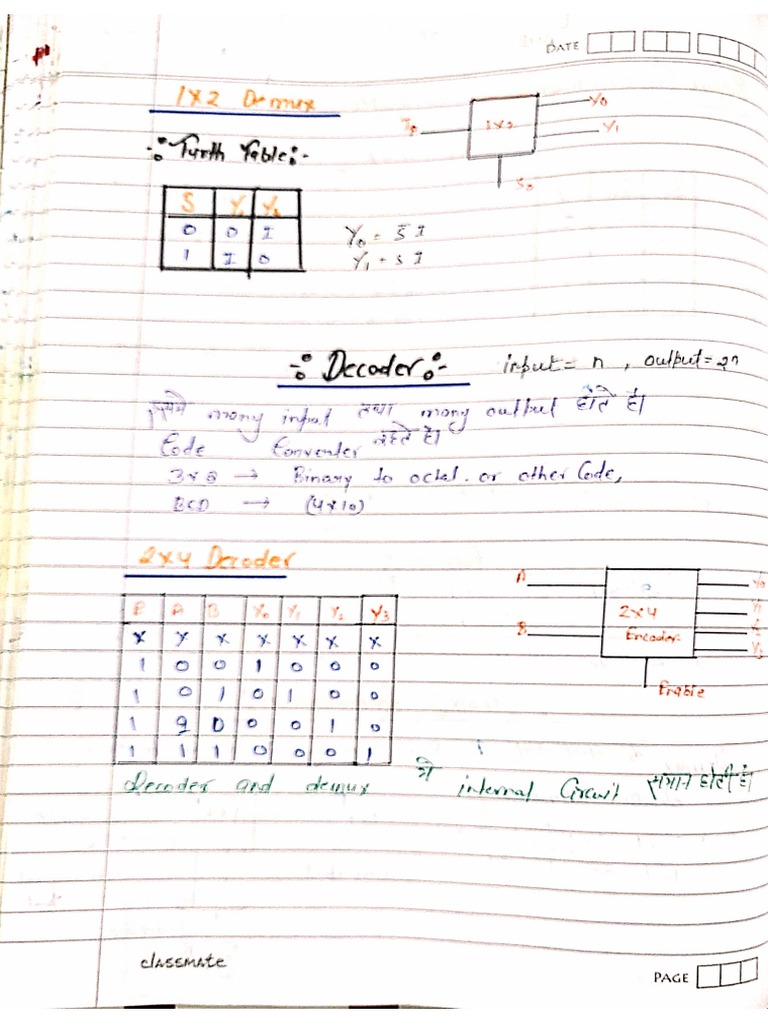 DATE
1x2 Demux
I0 1x2 Y0
Y1
S0
Turth Table:-
S Y1 Y0
0 0 I
1 I 0
Y0 = S̅ I
Y1 = S I
Decoder:- input = n , output = 2n
इसमे many input तथा many output होते है।
Code Converter कहते है।
3x8 → Binary to octal. or other Code,
BCD → (4x10)
2x4 Decoder
E A B Y0 Y1 Y2 Y3
x x x x x x x
1 0 0 1 0 0 0
1 0 1 0 1 0 0
1 0 0 0 1 0
1 1 1 0 0 0 1
A Y0
2x4 Y1
B Encoder
Y3
Enable
Decoder and demux मे internal Circuit समान होती है।
classmate
PAGE